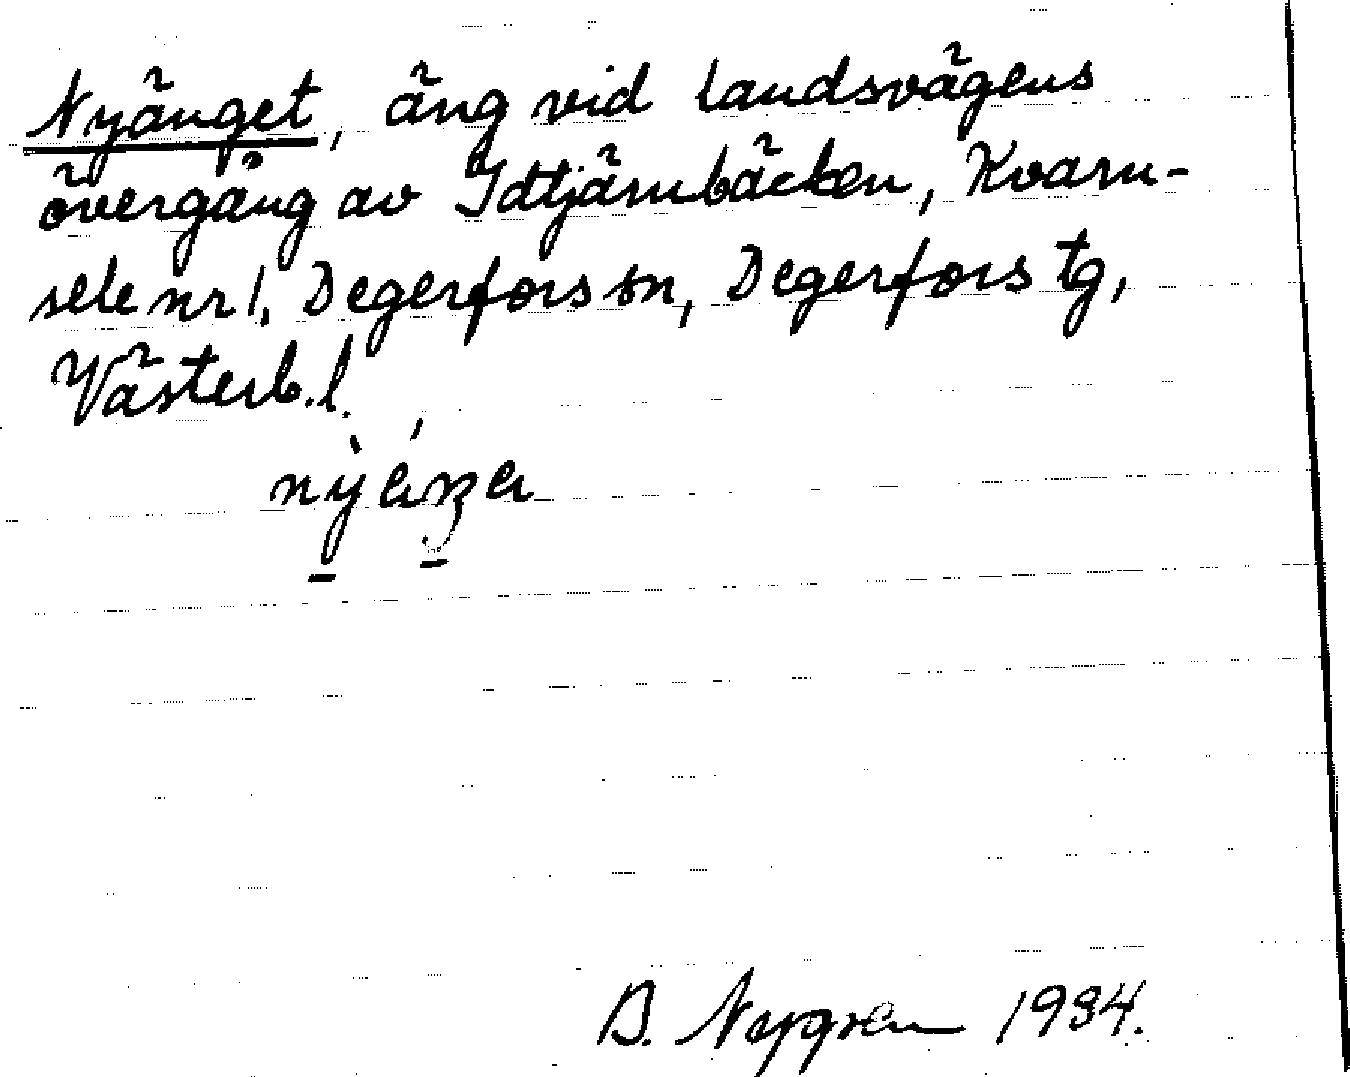 Nyänget, äng vid landsvägens
övergång av Idtjärnbäcken, Kvarn-
sele nr 1. Degerfors sn, Degerfors tg,
Västerb. l.
B. Nygren 1934.